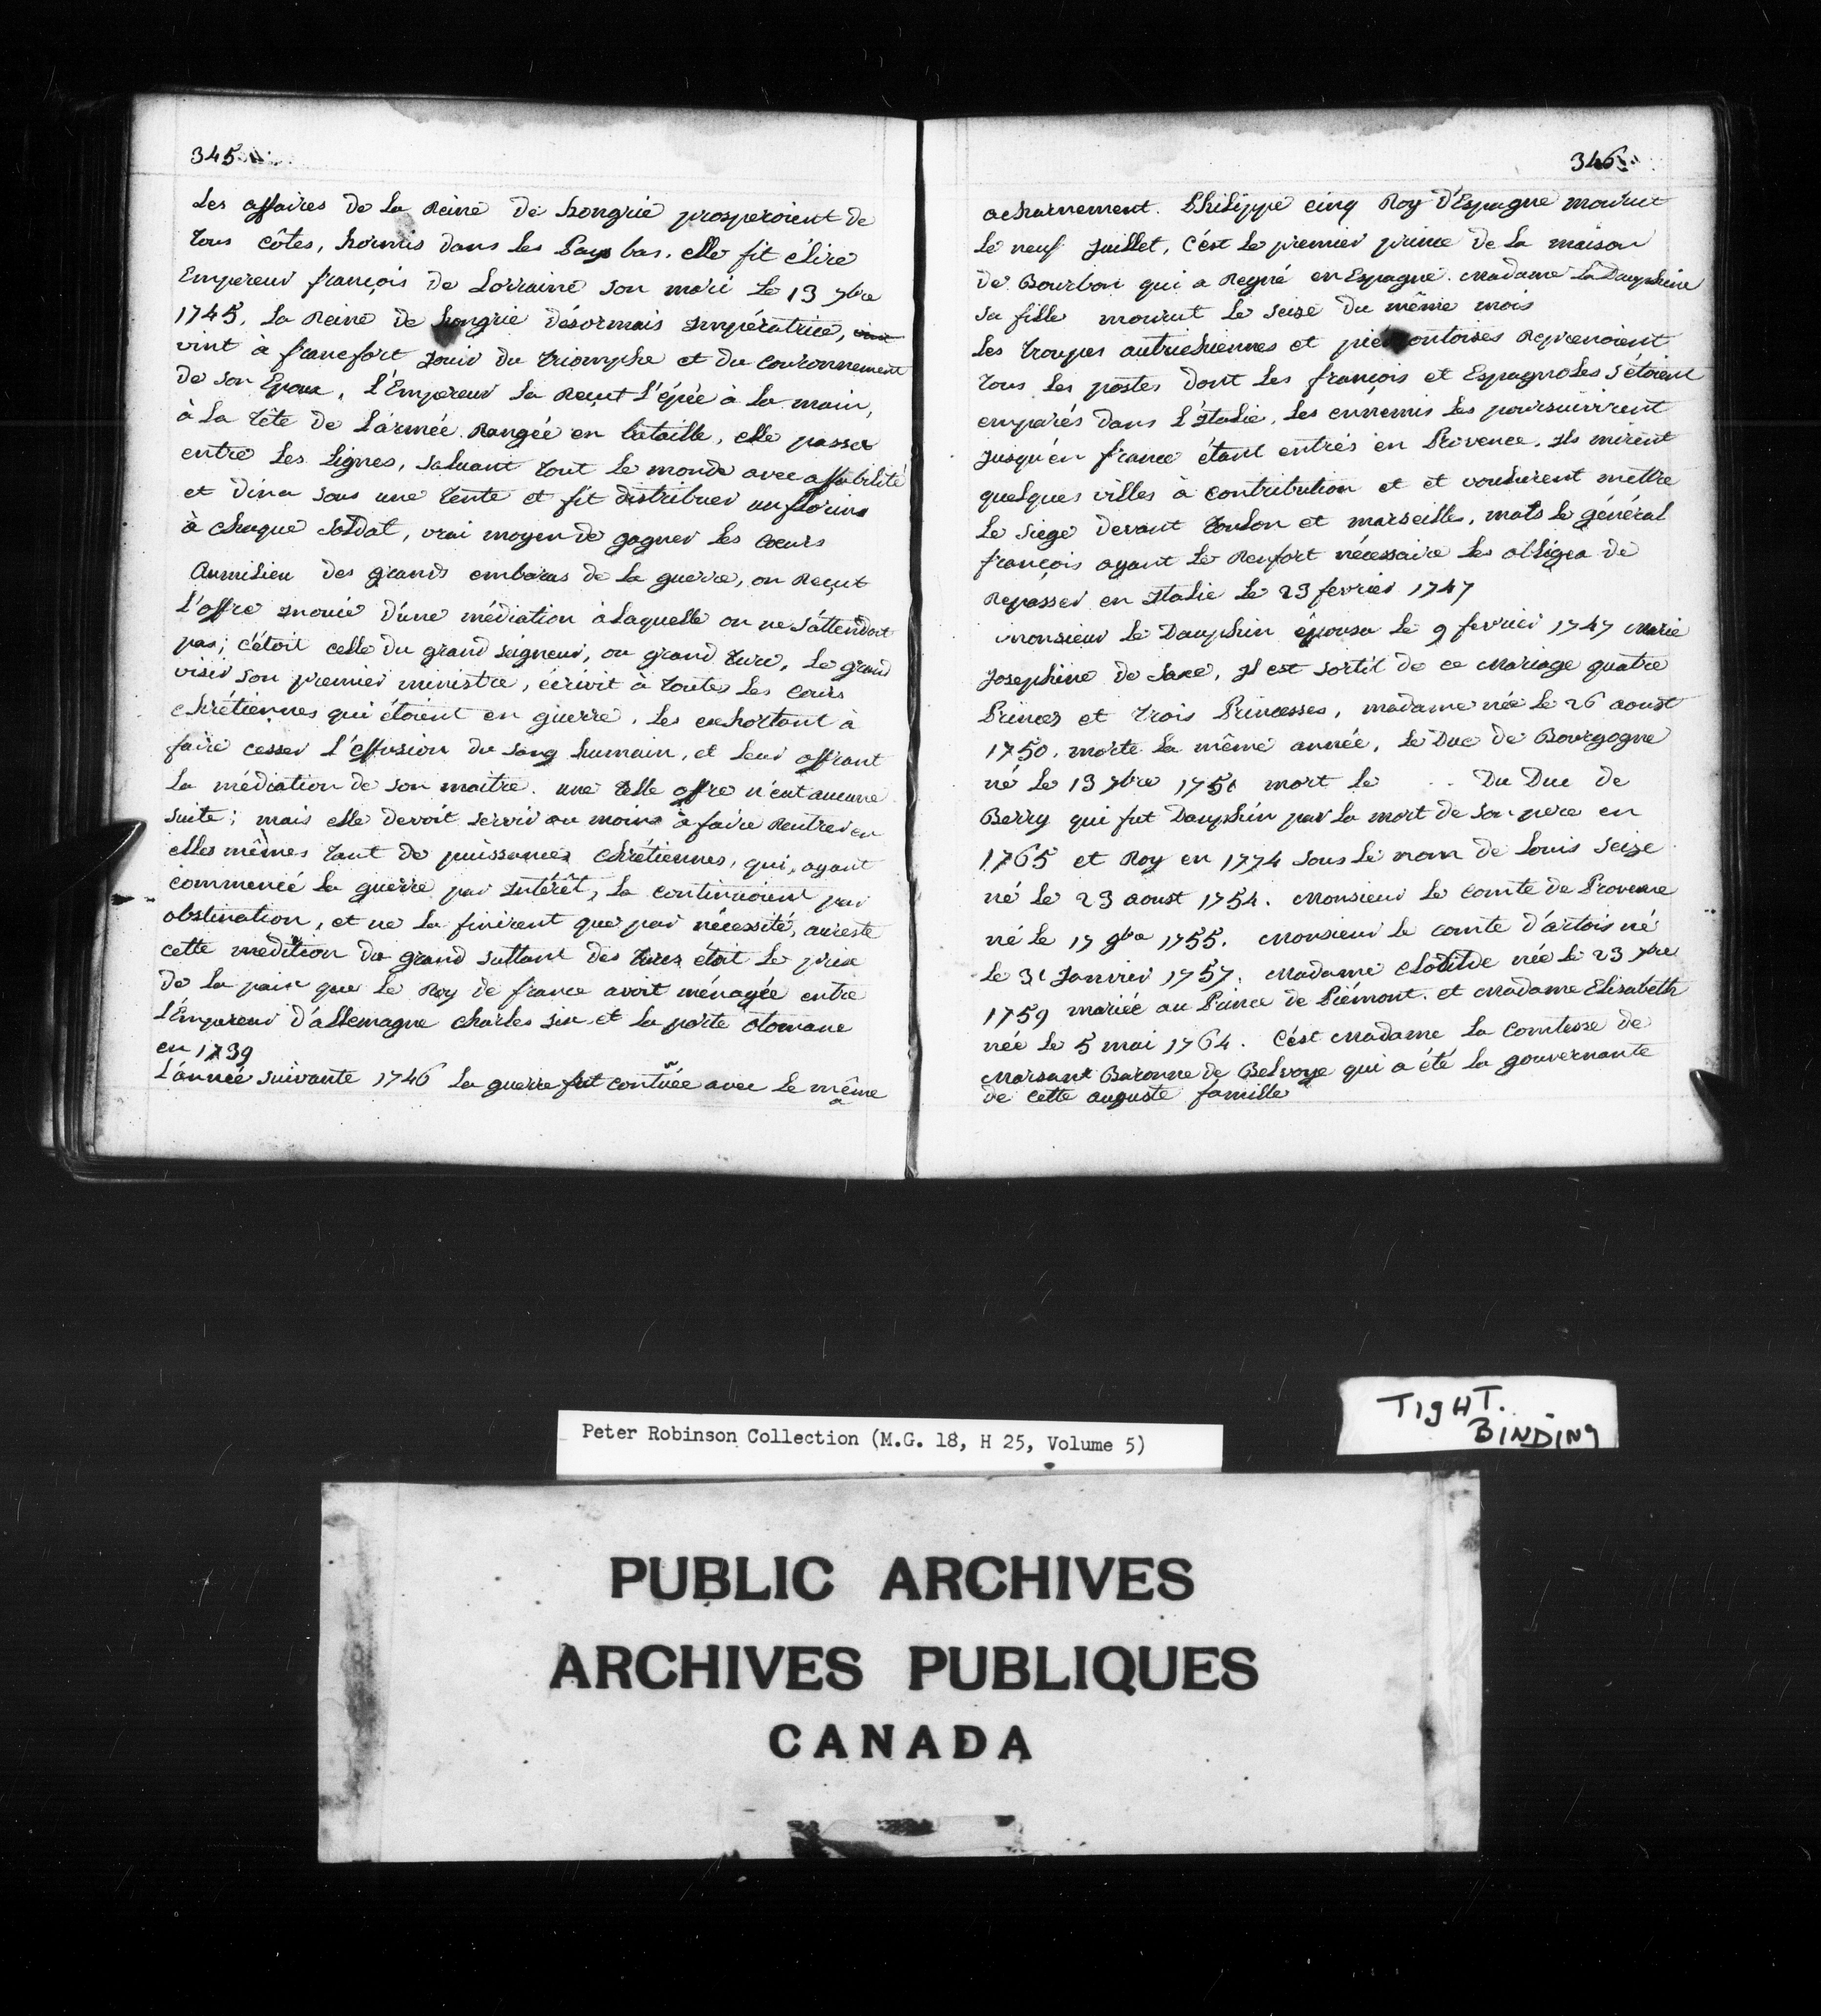 345
Les affaires de La Reine de hongrie prosperoient de
tous côtes, hormis dans les Pays bas. elle fit élire
Empereur françois de Lorraine son mari Le 13 7bre
1745. La Reine de hongrie désormais Impératrice,
vint à francfort Jouir du triomphe et du couronnement
de son Epoux, L'Empereur La Reçut L'épée à La main,
à La tête de L'armée Rangée en bataille, elle passa
entre Les Lignes, saluant tout Le monde avec affabilité
et dina sous une tente et fit distribuer un florins
à chaque soldat, vrai moyen de gagner Les coeurs
Aumilieu des grands embaras de La guerre, on Reçut
L'offre inouie d'une médiation à Laquelle on ne s'attendoit
pas; c'étoit celle du grand seigneur, ou grand turc, Le grand
visir son premier ministre, écrivit à toutes Les cours
chrétiennes qui étoient en guerre, Les exhortant à
faire cesser L'effusion du sang humain, et Leur offrant
La médiation de son maitre. une telle offre n'eut aucune
suite; mais elle devoit servir au moins à faire Rentrer en
elles mêmes tant de puissances chrétiennes, qui, ayant
commencé La guerre par Intérêt, La continuoient par
obstination, et ne La finirent que par nécessité, aureste
cette medition du grand sultant des turcs étoit Le prix
de La paix que Le Roy de france avoit ménagée entre
L'Empereur d'allemagne charles six et La porte otomane
en 1739
L'année suivante 1746 La guerre fut contuée avec Le même
346
acharnement. Philippe cinq Roy d'Espagne mourut
Le neuf Juillet, c'est Le premier prince de La maison
de Bourbon qui a Regné en Espagne. Madame La Dauphine
sa fille mourut Le seize du même mois
Les troupes autrichiennes et piémontoises Reprenoient
tous Les postes dont Les françois et Espagnoles s'étoient
emparés dans L'Italie, Les ennemis Les poursuivirent
Jusqu'en france étant entrés en Provence. Ils mirent
quelques villes à contribution et et voulurent mettre
Le siege devant toulon et marseilles, mais Le général
françois ayant Le Renfort nécessaire Les obligea de
Repasser en Italie Le 23 fevrier 1747
monsieur Le Dauphin épousa Le 9 fevrier 1747 Marie
Josephine de Saxe, Il est sortit de ce Mariage quatre
Princes et trois Princesses, madame née Le 26 aoust
1750. morte La même année, Le Duc de Bourgogne
né Le 13 7bre 1751 mort Le .. Du Duc de
Berry qui fut Dauphin par La mort de son pere en
1765 et Roy en 1774 sous Le nom de Louis seize
né Le 23 aoust 1754. Monsieur Le comte de Provence
né Le 17 9bre 1755. Monsieur Le comte d'artois né
Le 31 Janvier 1757. Madame Clotilde née Le 23 7bre
1759 mariée au Prince de Piémont. et Madame Elisabeth
née Le 5 mai 1764. C'est Madame La Comtesse de
Marsant Baronne de Belvoye qui a été La gouvernante
de cette auguste famille
TIGHT.
BINDING
Peter Robinson Collection (M.G. 18, H 25, Volume 5)
PUBLIC ARCHIVES
ARCHIVES PUBLIQUES
CANADA